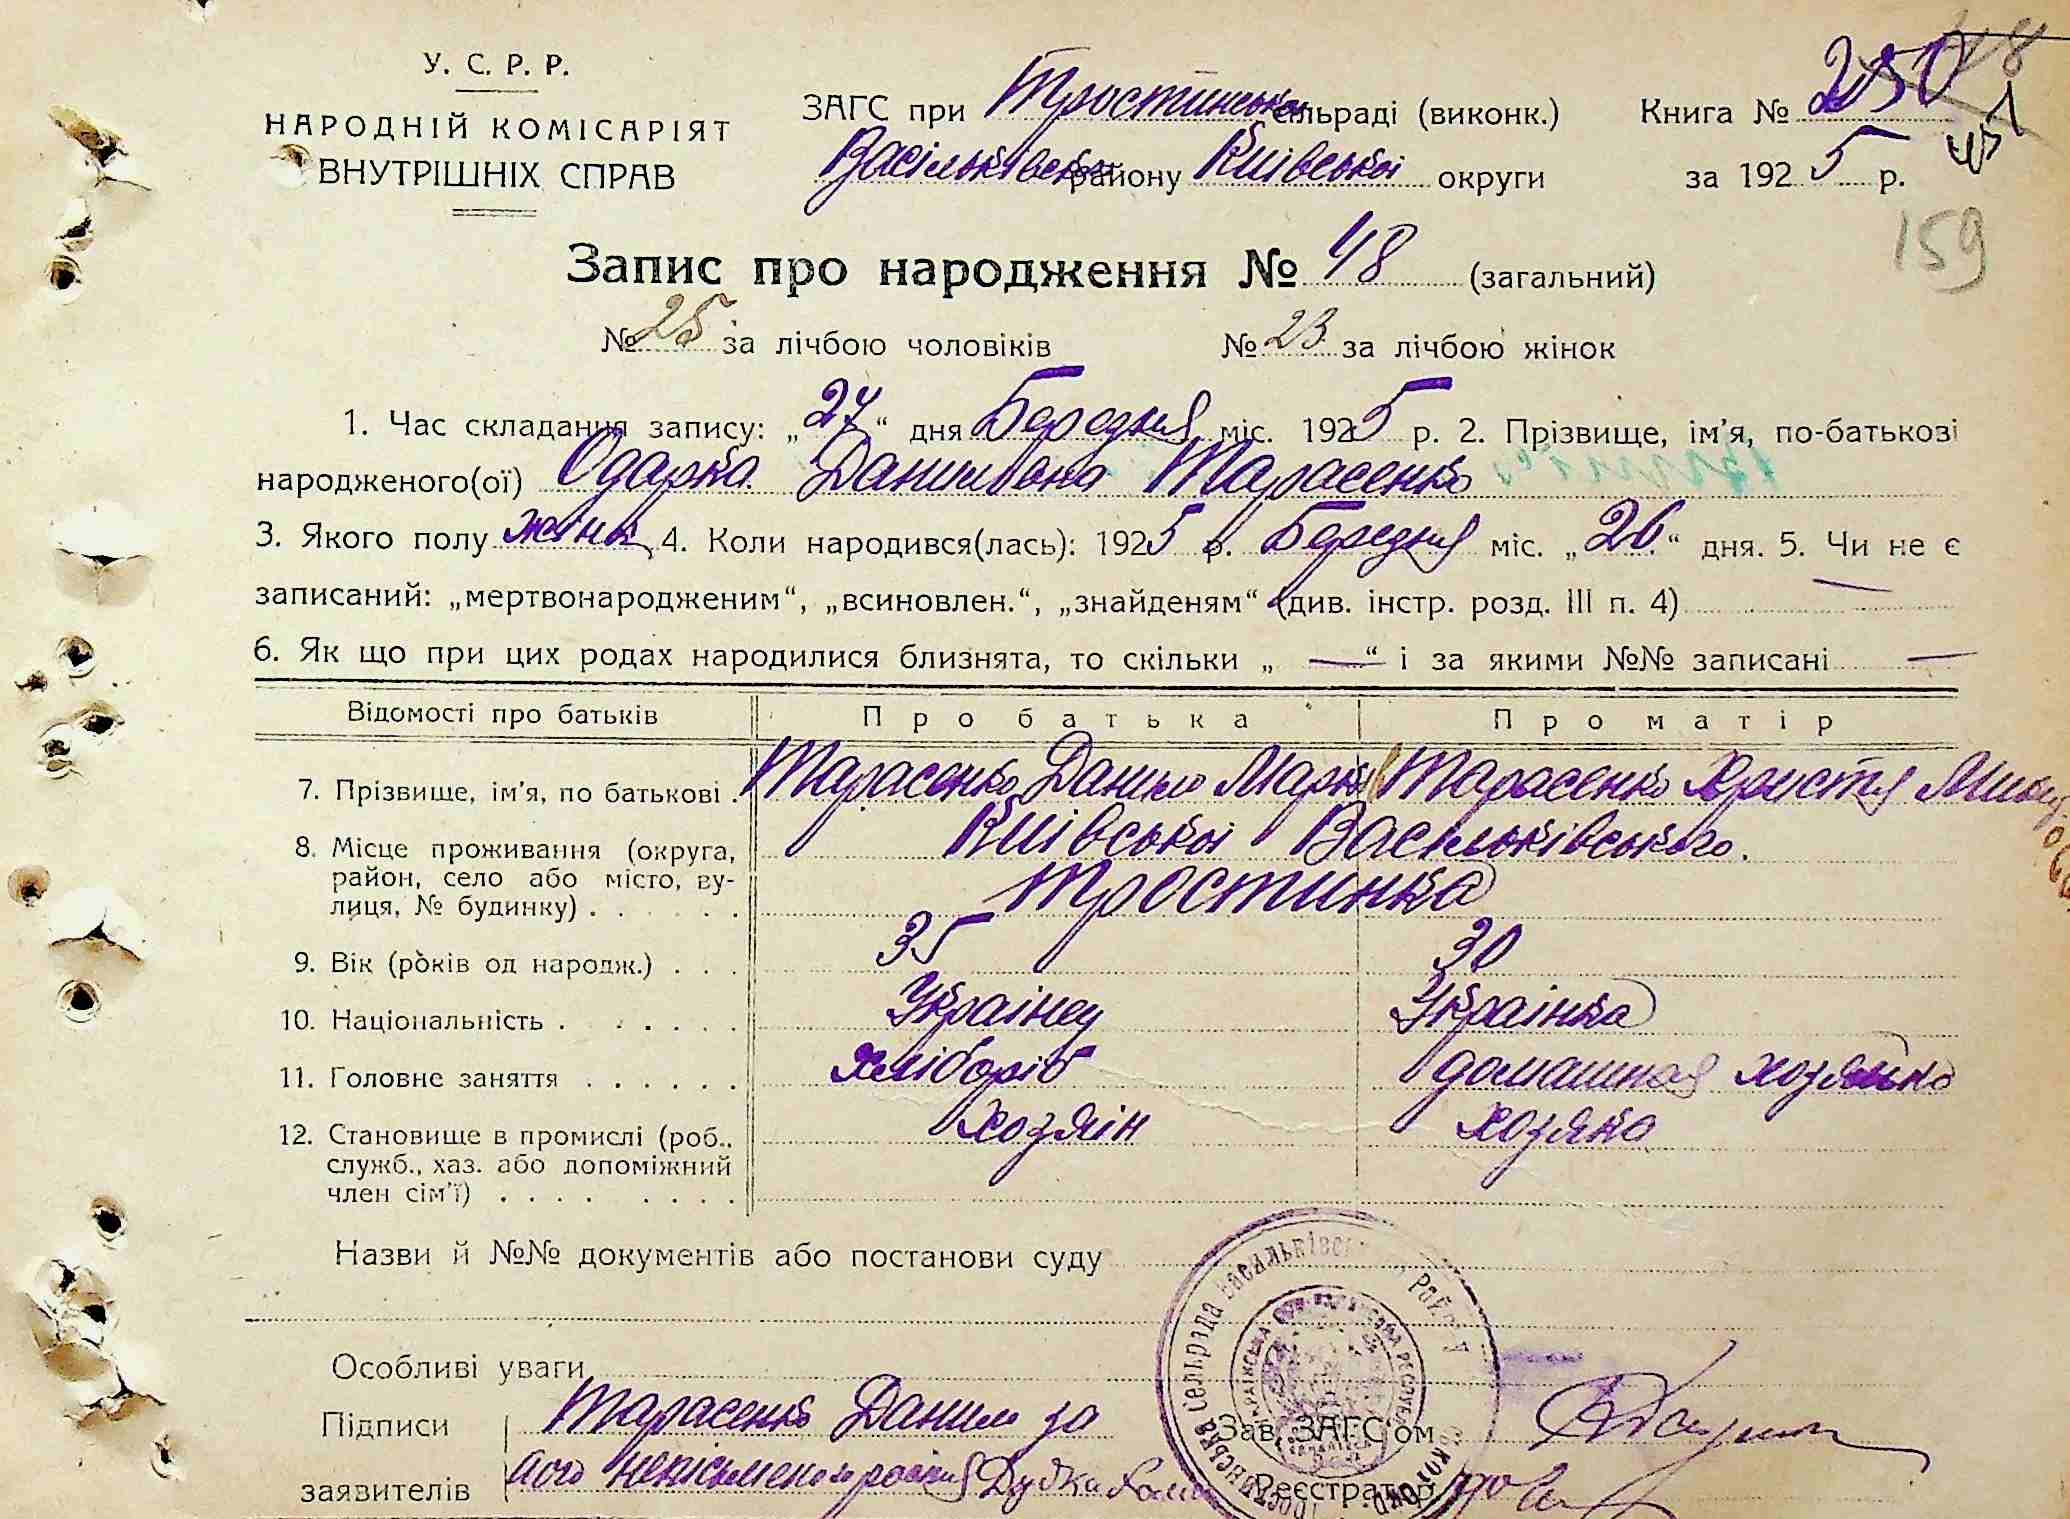 У. С. Р. Р.
НАРОДНІЙ КОМІСАРІЯТ
ВНУТРІШНІХ СПРАВ
ЗАГС при Тростинській сільраді (виконк.)
Васільківського району Київської округи
Книга № 250
за 1925 р.
159
Запис про народження № 48 (загальний)
№ 25 за лічбою чоловіків № 23 за лічбою жінок
1. Час складання запису: „27“ дня Березня міс. 1925 р. 2. Прізвище, ім'я, по-батькові
народженого(ої) Одарка Данилівна Тарасенко
3. Якого полу жіноч. 4. Коли народився(лась): 1925 р. Березня міс. „26“ дня. 5. Чи не є
записаний: „мертвонародженим“, „всиновлен.“, „знайденям“ (див. інстр. розд. III п. 4) —
6. Як що при цих родах народилися близнята, то скільки „ — “ і за якими №№ записані —
Відомості про батьків Про батька Про матір
7. Прізвище, ім'я, по батькові . Тарасенко Данило Марк Тарасенко Христя
8. Місце проживання (округа, Київської Васильківського.
район, село або місто, ву- Тростинка
лиця, № будинку) . . . . .
9. Вік (років од народж.) . . . 35 30
10. Національність . . . . . . . Українец Українка
11. Головне заняття . . . . . . хлібороб домашная хозяйка
12. Становище в промислі (роб., хозяін хозяка
служб., хаз. або допоміжний
член сім'ї) . . . . . . . . .
Назви й №№ документів або постанови суду
Особливі уваги
Підписи Тарасенко Данило за Зав. ЗАГС'ом
заявителів його неписьмен Дудка Реєстратор